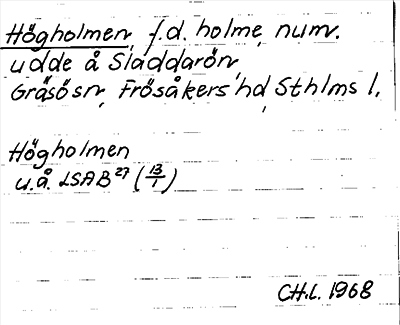 Högholmen, f.d. holme, numr.
udde å Sladdarön,
Gräsö sn, Frösåkers hd, Sthlms l.
Högholmen
u.å. LSA B²⁷ (13/1)
CH.L. 1968